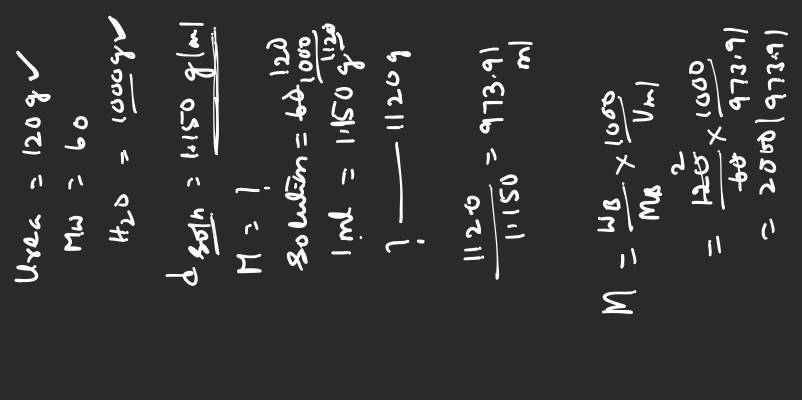 Urea = 120 g ✓
Mw = 60
H2O = 1000 g ✓
d soln = 1.150 g/ml
M = ?
Solution = 60 120
1000
1120
1 ml = 1.150 g
? — 1120 g
1120 / 1.150 = 973.91 ml
M = WB / MB × 1000 / Vml
= 120 / 60 2 × 1000 / 973.91
= 2000 / 973.91